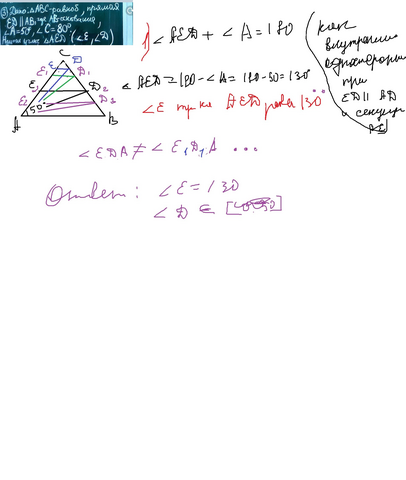 ③ Дано: △ABC-равноб, прямая
ED || AB, где AB-основание,
∠A=50°, ∠C=80°,
△AED (∠E, ∠D)
1) ∠AED + ∠A = 180
как
внутренние
односторонние
при
ED || AB
и секущей
∠AED = 180 - ∠A = 180 - 50 = 130°
∠E равен 130°
C
E D
E₁ D₁
E D₂
E₂ D₃
50°
A B
∠EDA ≠ ∠E₁D₁A ...
Ответ: ∠E = 130
∠D ∈